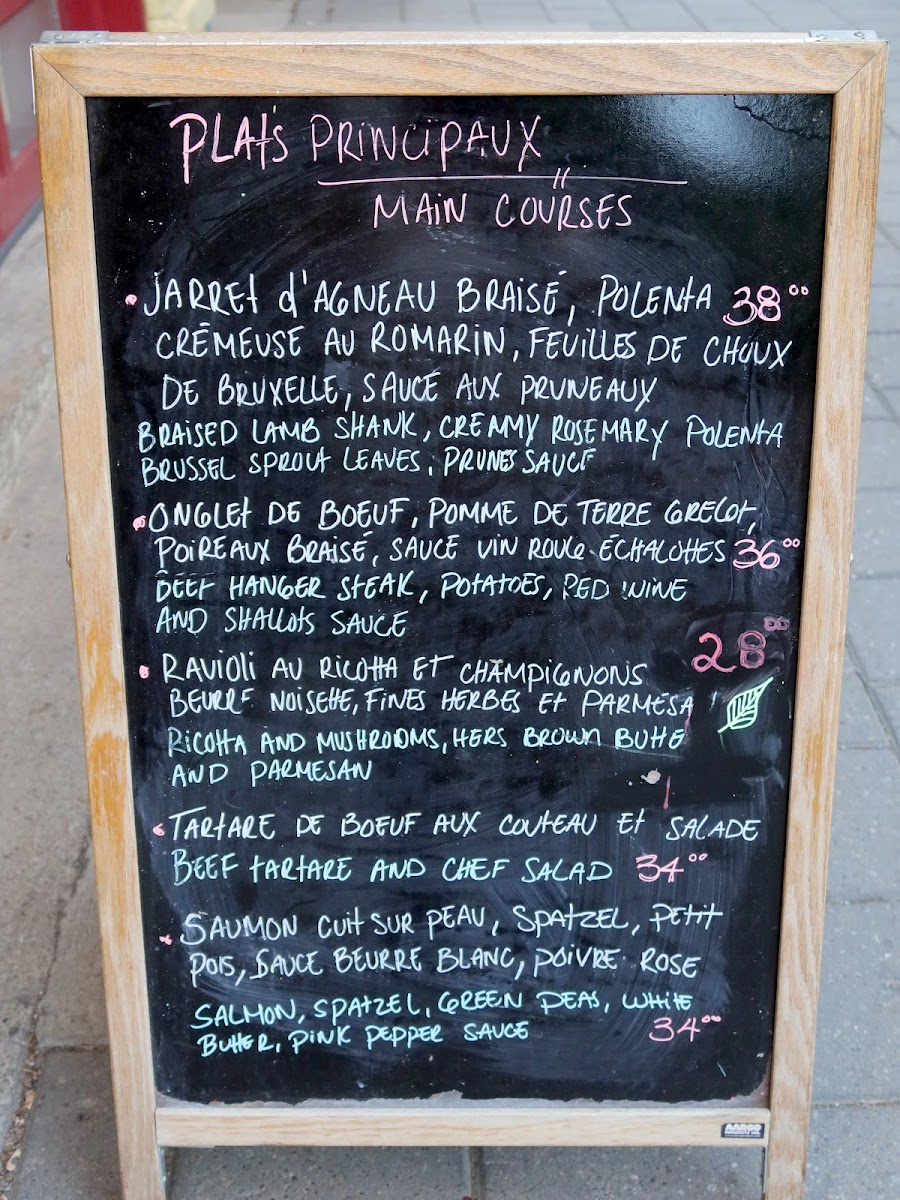 PLAtS PRINCIPAUX
MAIN COURSES
JARREt d'AGNEAU BRAISÉ, POLENtA 38⁰⁰
CRÉMEUSE AU ROMARIN, FEUILLES DE CHOUX
DE BRUXELLE, SAUCE AUX PRUNEAUX
BRAISED LAMB SHANK, CREAMY ROSEMARY POLENtA
BRUSSEL SPROUt LEAVES, PRUNES SAUCE
ONGLEt DE BOEUF, POMME DE TERRE GRELOt,
POIREAUX BRAISÉ, SAUCE VIN ROUGE ÉCHALOttES 36⁰⁰
BEEF HANGER STEAK, POTATOES, RED WINE
AND SHALLOtS SAUCE
28⁰⁰
RAViOLi AU RICOttA ET CHAMPIGNONS
BEURRE NOISEttE, FINES HERBES Et PARMESA
RICOttA AND MUSHROOMS, HERS BROWN BUttE
AND PARMESAN
TARtARE DE BOEUF AUX COUtEAU Et SALADE
BEEF tARtARE AND CHEF SALAD 34⁰⁰
SAUMON CUIt SUR PEAU, SPAtZEL, PEtIt
POIS, SAUCE BEURRE BLANC, POIVRE ROSE
SALMON, SPAtZEL, GREEN PEAS, WHItE
BUttER, PINK PEPPER SAUCE 34⁰⁰
AARCO
PRODUCTS INC.